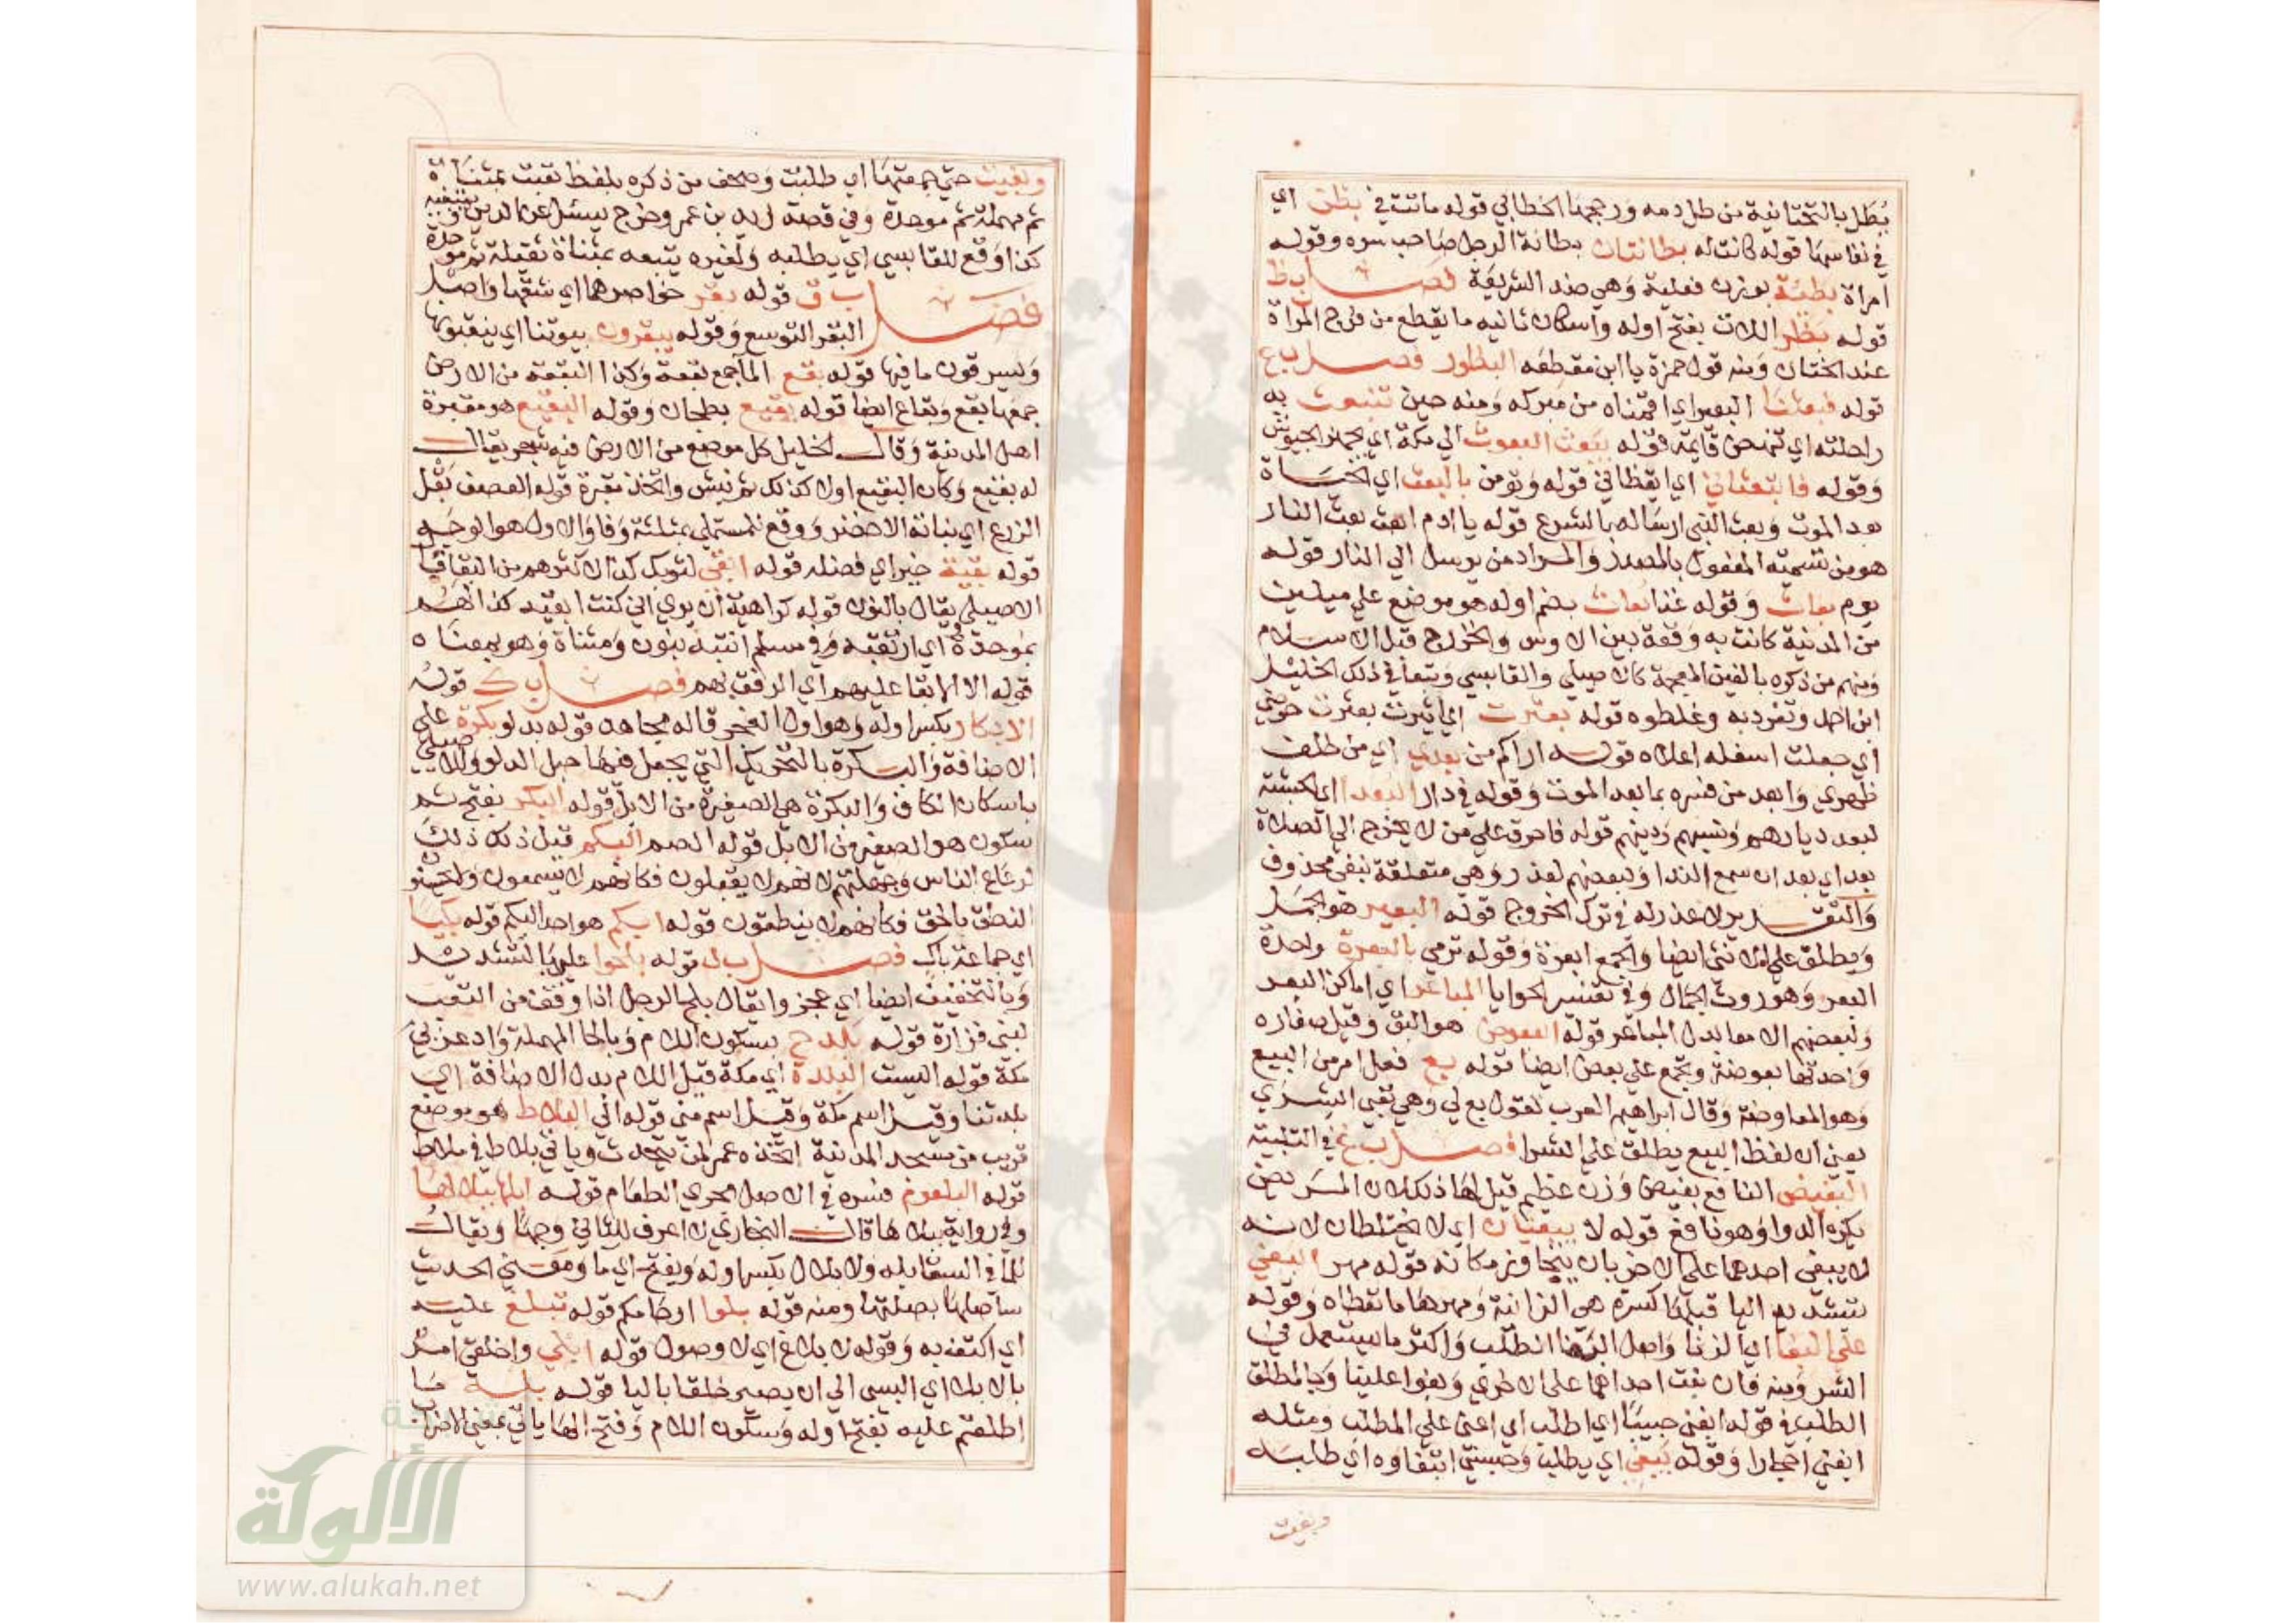 يُطَل بالتحتانية من طل دمه ورجحها الخطابي قوله ماتت في بطن اي
في نفاسها قوله كانت له بطانتان بطانة الرجل صاحب سره وقوله
امراة بطيَّة بوزن فعلية وهي ضد السريعة فصل ب ظ
قوله بظر اللات بفتح اوله واسكان ثانيه ما يقطع من فرج المراة
عند الختان ومنه قول حمزة يا ابن مقطعه البظور فصل ب ع
قوله فبعثنا البعير اي اقمناه من مبركه ومنه حين تنبعث به
راحلته اي تنهض قايمة قوله يبعث البعوث الي مكة اي يجهز الجيوش
وقوله فابتعثاني اي ايقظاني قوله وتومن بالبعث اي الحياة
بعد الموت وبعث النبي ارساله بالشرع قوله يا ادم ابعث بعث النار
هو من تسمية المفعول بالمصدر والمراد من يرسل الي النار قوله
يوم بعاث وقوله غنا بعاث بضم اوله هو موضع علي ميلين
من المدينة كانت به وقعة بين الاوس والخزرج قبل الاسلام
ومنهم من ذكره بالغين المعجمة كالاصيلي والقابسي وتبعا في ذلك الخليل
ابن احمد وتفرد به وغلطوه قوله بعثرت اي اثيرت بعثرت حوضي
اي جعلت اسفله اعلاه قوله اراكم من بعدي اي من خلف
ظهري وابعد من فسره بما بعد الموت وقوله في دار البعدا اي الحبشة
لبعد ديارهم ونسبهم ودينهم قوله فاحرق علي من لا يخرج الي الصلاة
بعد اي بعد ان سمع الندا ولبعضهم لعذر وهي متعلقة بنفي محذوف
والتقدير لا عذر له في ترك الخروج قوله البعير هو الجمل
ويطلق علي الانثي ايضا والجمع ابعرة وقوله ترمي بالبعرة واحدة
البعر وهو روث الجمال وفي تفسير الحوايا المباعر اي اماكن البعر
ولبعضهم الامعا بدل المباعر قوله البعوض هو البق وقيل صغاره
واحدتها بعوضة ويجمع علي بعض ايضا قوله بع فعل امر من البيع
وهو المعاوضة وقال ابراهيم العرب تقول بع لي وهي تعني الشري
يعني ان لفظ البيع يطلق علي الشرا فصل ب غ في التلبينة
البغيض النافع بغيض وزن عظيم قيل لها ذلك لان المريض
يكره الدوا وهو نافع قوله لا يبغيان اي لا يختلطان لانه
لا يبغي احدهما علي الاخر بان يتجاوز مكانه قوله مهر البغي
بتشديد اليا قبلها كسرة هي الزانية ومهرها ما تعطاه وقوله
علي البغا اي الزنا واصل البغا الطلب واكثر ما يستعمل في
الشر ومنه فان بغت احداهما علي الاخري وبغوا علينا وجا لمطلق
الطلب في قوله ابغني حبيبا اي اطلب اي اعني علي المطلب ومثله
ابغني احجارا وقوله يبغي اي يطلب وحبسني ابتغاوه اي طلبه
وبغيت
وبغيت حتي جمعتها اي طلبت وصحف من ذكره بلفظ تعبت بمثناة
ثم مهملة ثم موحدة وفي قصة زيد بن عمرو خرج يسئل عن الدين ويبتغيه
كذا وقع للقابسي اي يطلبه ولغيره يتبعه بمثناة ثقيلة ثم موحدة
فصل ب ق قوله بقر خواصرهما اي شقها واصل
البقر التوسع وقوله يبقرون بيوتنا اي ينقبونها
ويسرقون ما فيها قوله بقع الما جمع بقعة وكذا البقعة من الارض
جمعها بقع وبقاع ايضا قوله بقيع بطحان وقوله البقيع هو مقبرة
اهل المدينة وقال الخليل كل موضع من الارض فيه شجر يقال
له بقيع وكان البقيع اولا كذلك ثم نبش واتخذ مقبرة قوله العصف بقل
الزرع اي نباته الاخضر ووقع للمستملي بمثلثة وفا والاول هو الوجه
قوله بقية خير اي فضله قوله ابقي لثوبك كذا لاكثرهم من البقا
الاصيلي يقال بالنون قوله كراهية ان يري اني كنت ابقيه كذا لهم
بموحدة اي ارتقبه وفي مسلم انتبه بنون ومثناة وهو بمعناه
قوله الا الابقا عليهم اي الرفق بهم فصل ب ك قوله
الابكار بكسر اوله وهو اول الفجر قاله مجاهد قوله بدلو بكرة علي
الاضافة والبكرة بالتحريك التي يجعل فيها حبل الدلو وللاصيلي
باسكان الكاف والبكرة هي الصغيرة من الابل قوله البكر بفتح ثم
سكون هو الصغير من الابل قوله الصم البكم قيل ذلك ذلك
لرعاع الناس وجهلتهم لانهم لا يقبلون فكانهم لا يسمعون ولا يحسنو
النطق بالحق فكانهم لا ينطقون قوله ابكم هو واحد البكم قوله بكيا
اي جماعة باك فصل ب ل قوله بلحوا علي بالتشديد
وبالتخفيف ايضا اي عجزوا يقال بلح الرجل اذا وقف من التعب
لبني فزارة قوله بلدح بسكون اللام وبالحا المهملة واد غربي
مكة قوله اليست البلدة اي مكة قيل اللام بدل الاضافة اي
بلدتنا وقيل اسم مكة وقيل اسم مني قوله الي البلاط هو موضع
قريب من مسجد المدينة اتخذه عمر لمن يتحدث وياتي بلاط في ملاط
قوله البلعوم فسره في الاصل مجري الطعام قوله ابلها ببلالها
وفي رواية ببلاها قال البخاري لا اعرف للثاني وجها ويقال
للما في السقا بله ولا بلال بكسر اوله ويفتح اي ما ومعني الحديث
ساصلها بصلتها ومنه قوله بلوا ارحامكم قوله تبلغ عليه
اي اكتف به وقوله لا بلاغ اي لا وصول قوله ابلي واخلقي امر
بالابلا اي البسي الي ان يصير خلقا باليا قوله بله ما
اطلعتم عليه بفتح اوله وسكون اللام وفتح الها ياتي بمعني الاضراب
شبكة
الألوكة
www.alukah.net